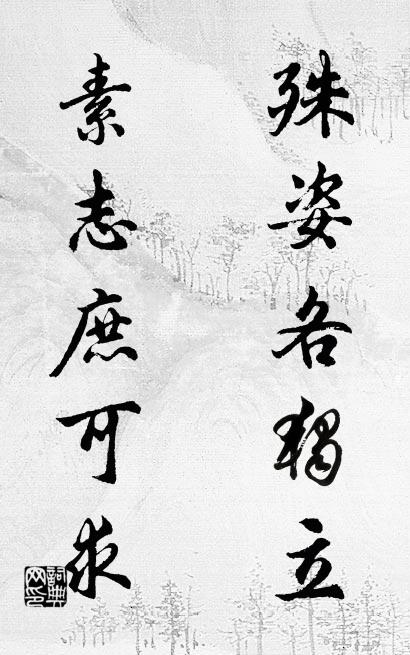 殊姿各獨立
素志庶可求
詞典网